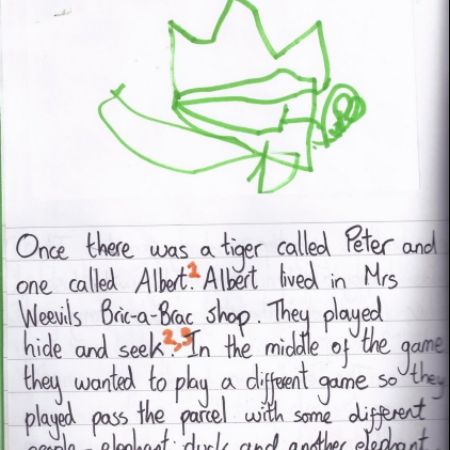 Once there was a tiger called Peter and
one called Albert.² Albert lived in Mrs
Weevils Bric-a-Brac shop. They played
hide and seek.²,³ In the middle of the game
they wanted to play a different game so they
played pass the parcel with some different
people - elephant, duck and another elephant.